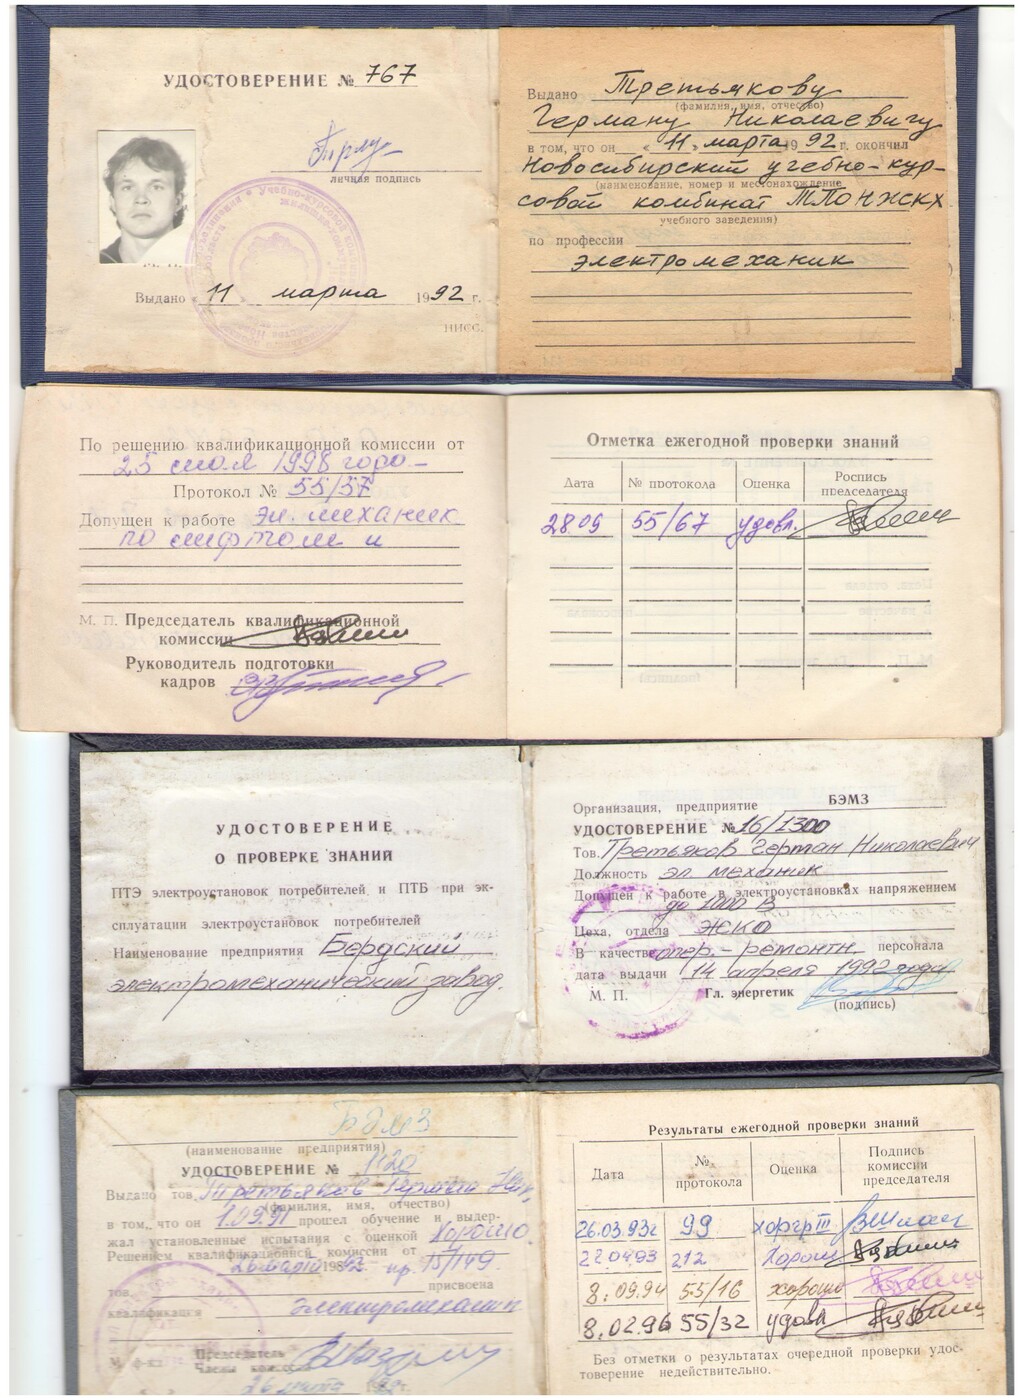 УДОСТОВЕРЕНИЕ № 767
личная подпись
Выдано « 11 » марта 1992 г.
НИСС.
Выдано Третьякову
(фамилия, имя, отчество)
Герману Николаевичу
в том, что он « 11 » марта 1992 г. окончил
Новосибирский учебно-кур-
(наименование, номер и местонахождение
совой комбинат ТПОЖКХ
учебного заведения)
по профессии
электромеханик
По решению квалификационной комиссии от
25 июля 1998 года
Протокол № 55/57
Допущен к работе эл. механик
по лифтам и
М. П. Председатель квалификационной
комиссии
Руководитель подготовки
кадров
Отметка ежегодной проверки знаний
Дата № протокола Оценка Роспись
председателя
28 09 55/67 удовл.
УДОСТОВЕРЕНИЕ
О ПРОВЕРКЕ ЗНАНИЙ
ПТЭ электроустановок потребителей и ПТБ при эк-
сплуатации электроустановок потребителей
Наименование предприятия Бердский
электромеханический завод.
Организация, предприятие БЭМЗ
УДОСТОВЕРЕНИЕ № 16/1300
Тов. Третьяков Герман Николаевич
Должность эл. механик
Допущен к работе в электроустановках напряжением
до 1000 В
Цеха, отдела ЖКО
В качестве опер.-ремонтн персонала
дата выдачи 14 апреля 1992 года
М. П. Гл. энергетик
(подпись)
БЭМЗ
(наименование предприятия)
УДОСТОВЕРЕНИЕ № 120
Выдано тов. Третьяков Герман Ник.
(фамилия, имя, отчество)
в том, что он 1.09.91 прошел обучение и выдер-
жал установленные испытания с оценкой хорошо.
Решением квалификационной комиссии от
26 марта 1992 пр. 15/149
тов. присвоена
квалификация электромеханик
Председатель
Члены комиссии
26 марта
Результаты ежегодной проверки знаний
Дата № протокола Оценка Подпись комиссии председателя
26.03.93г 99 хор гр III
22 04 93 212 хорош
8.09.94 55/16 хорошо
8.02.96 55/32 удовл
Без отметки о результатах очередной проверки удос-
товерение недействительно.